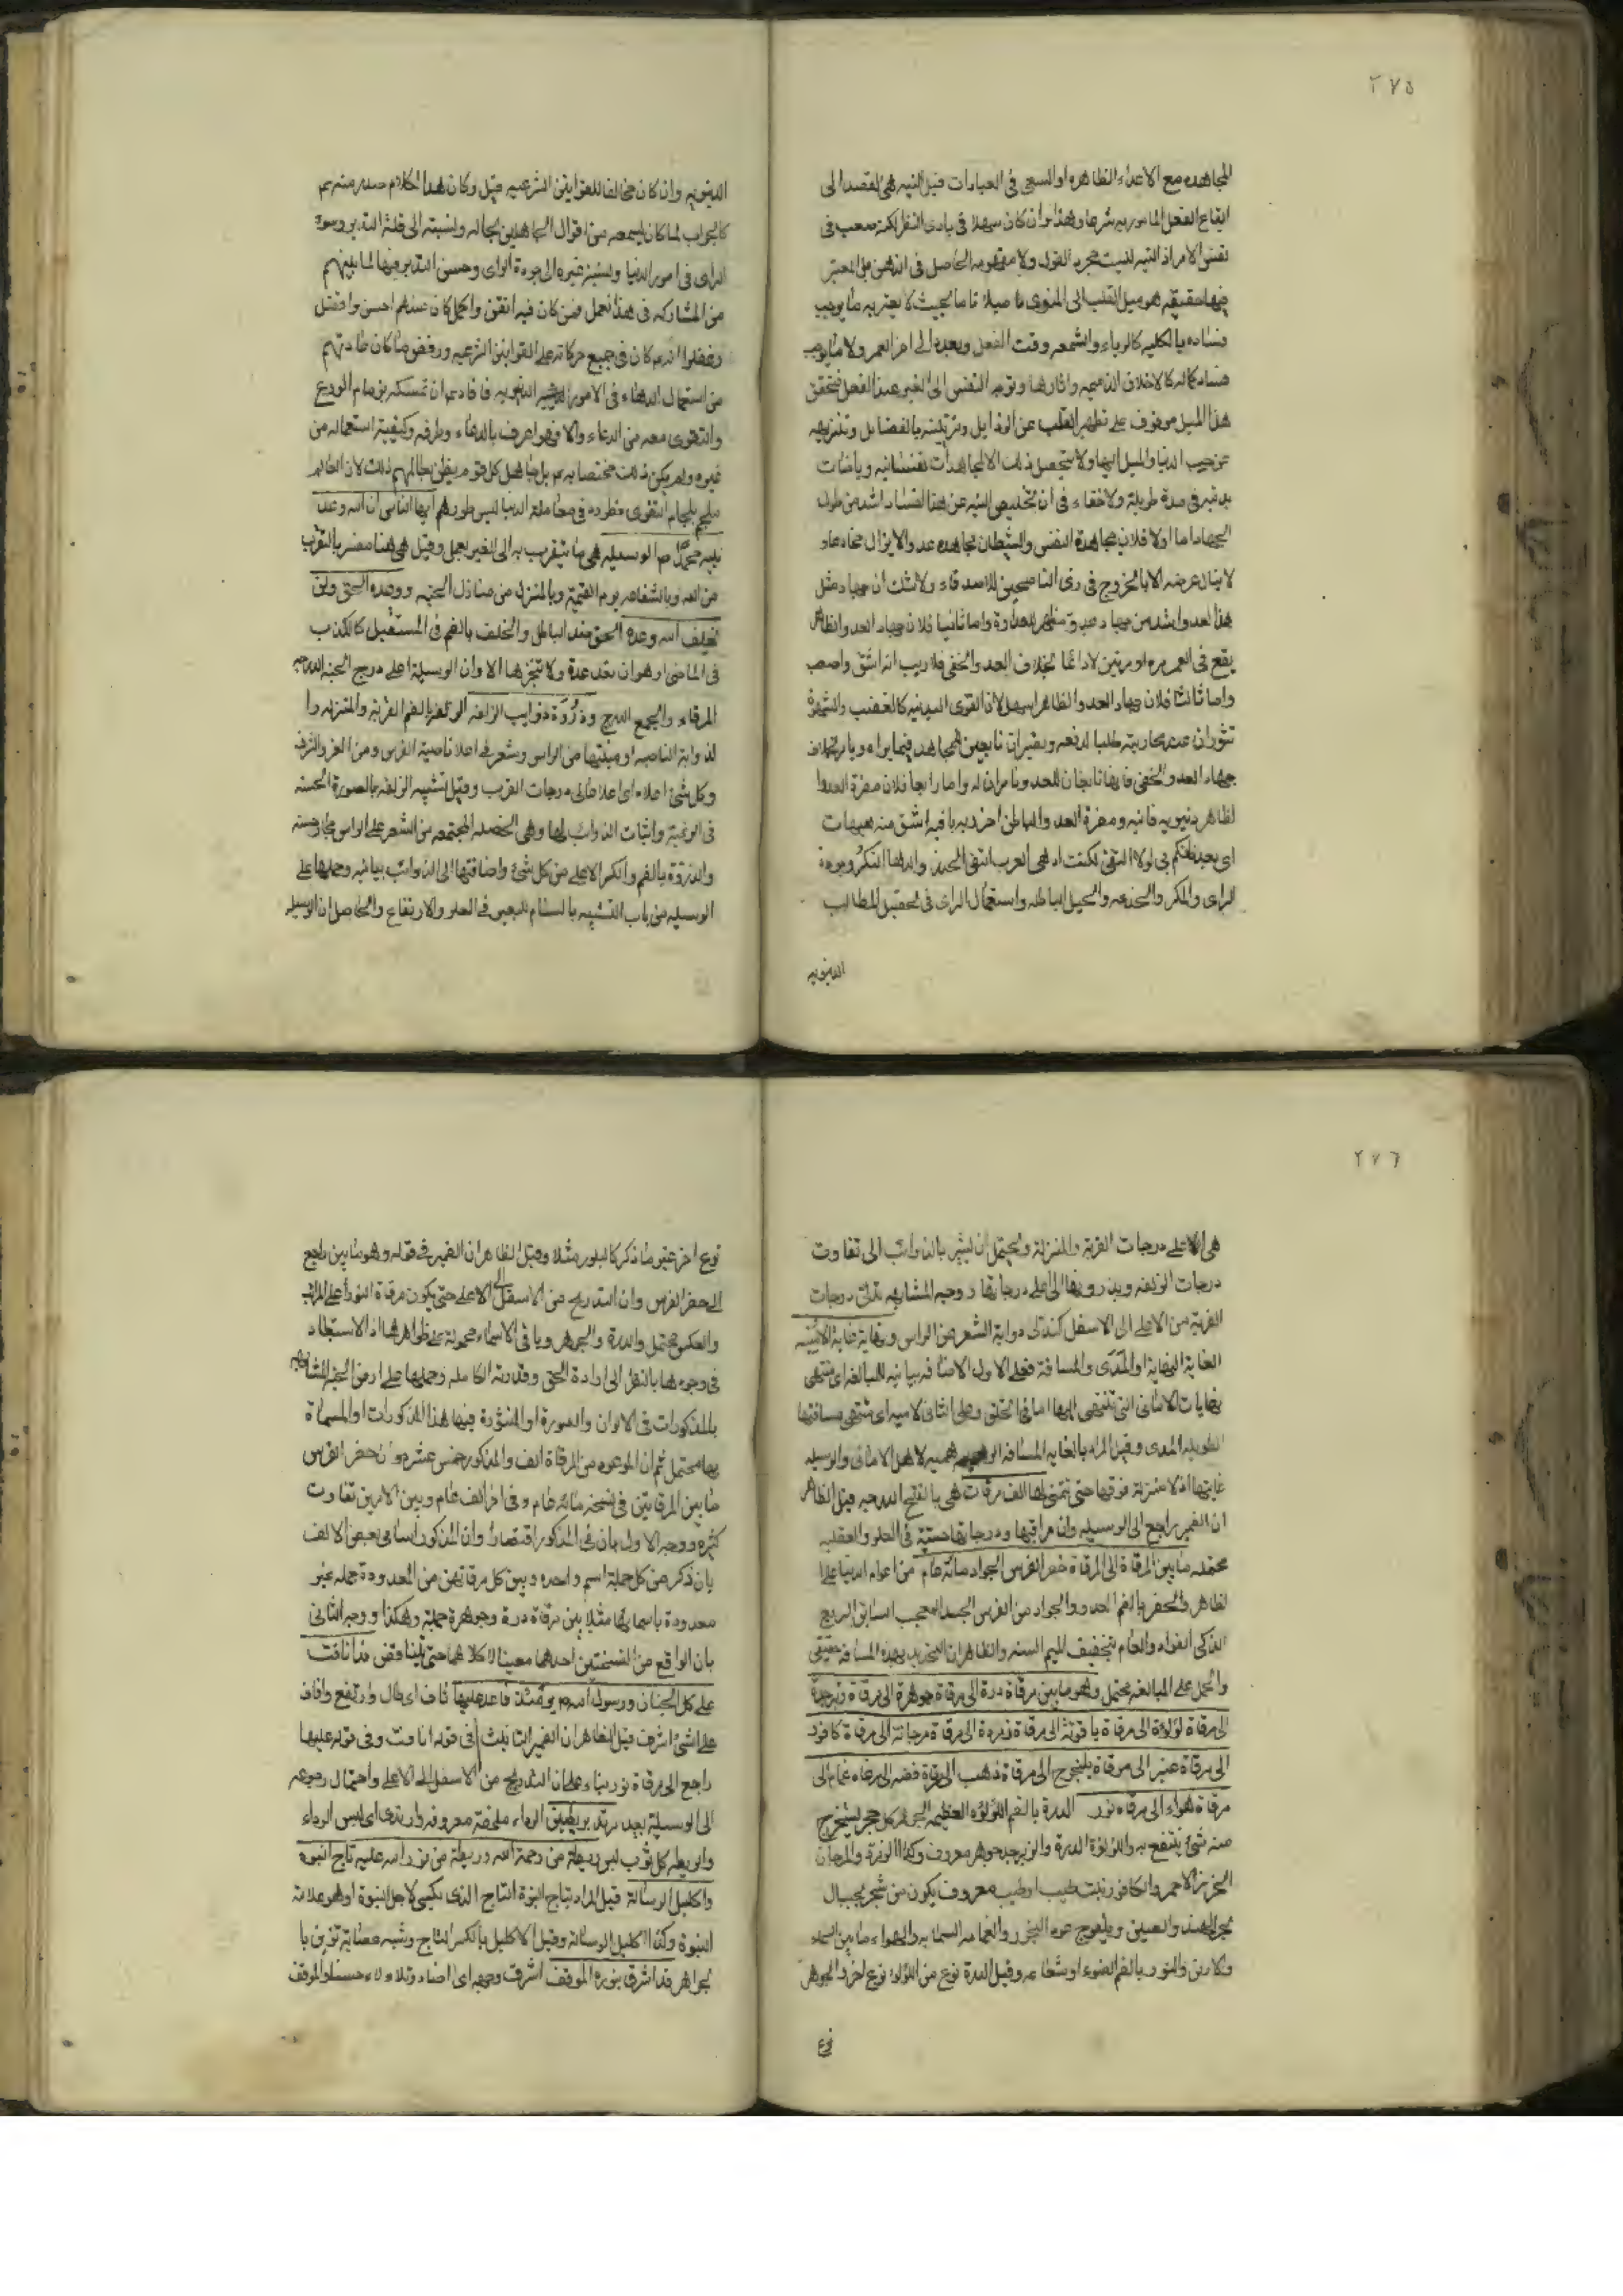 ٢٧٥
المجاهده مع الاعداء الظاهره او السعى فى العبادات قيل النيه هى القصد الى
ايقاع الفعل المامور به شرعا وهذا وان كان سهلا فى بادى النظر لكنه صعب فى
نفس الامر اذ النيه ليست مجرد القول ولا مفهومه الحاصل فى الذهن بل المعتبر
فيها حقيقه هو ميل القلب الى المنوى ميلا تاما بحيث لا يعتريه ما يوجب
فساده بالكليه كالرياء والسمعه وقت الفعل وبعده الى اخر العمر ولا ما يوجب
فساد كماله كالاخلاق الذميمه واثارها وتوجه النفس الى الغير عند الفعل فتحقق
هذا الميل موقوف على تطهير القلب عن الرذايل وتزيينه بالفضايل وتنزيهه
عن حب الدنيا والميل اليها ولا يتحصل ذلك الا بمجاهدات نفسانيه ورياضات
بدنيه فى مدة طويلة ولا خفاء فى ان تخليص النيه عن هذا الفساد اشد من طول
الجهاد اما اولا فلان مجاهدة النفس والشيطان مجاهده عدو لا يزال مخادعا و
لا ينال غرضه الا بالخروج فى زى الناصحين للاصدقاء ولا شك ان جهاد مثل
هذا العدو اشد من جهاد عدو مظهر للعداوة واما ثانيا فلان جهاد العدو الظاهر
يقع فى العمر مره او مرتين لا دائما بخلاف العدو الخفى فلا ريب انه اشق واصعب
واما ثالثا فلان جهاد العدو الظاهر اسهل لان القوى البدنيه كالغضب والشهوة
تثوران عند محاربته طلبا لدفعه ويصيران تابعين للمجاهد فيما يراه ويامر بخلاف
جهاد العدو الخفى فانهما تابعان للعدو وناصران له واما رابعا فلان مضرة العدو ا
لظاهر دنيويه فانيه ومضرة العدو الباطن اخرويه باقيه اشق منه هيهات
اى بعد ظنكم بى لولا التقى لكنت ادهى العرب انتهى الحديث والدهاء النكر وجودة
الراى والمكر والخدعه والحيل الباطله واستعمال الراى فى تحصيل المطالب
الدنيويه
الدنيويه وان كان مخالفا للقوانين الشرعيه قيل وكان هذا الكلام صدر منه ع
كالجواب لما كان يسمعه من اقوال الجاهلين بحاله ونسبته الى قلة التدبر وسوء
الراى فى امور الدنيا ونسبة غيره الى جودة الراى وحسن التدبير فيها لما بينهم
من المشاركه فى هذا العمل فمن كان فيه اتقن واكمل كان عندهم احسن وافضل
وغفلوا انه ع كان فى جميع حركاته على القوانين الشرعيه ورفض ما كان عادتهم
من استعمال الدهاء فى الامور الدنيويه فافاد ع ان تمسكه بزمام الورع
والتقوى منعه من الدهاء والا فهو اعرف بالدهاء وطرقه وكيفية استعماله من
غيره ولم يكن ذلك مختصا به ع بل جاهل كل قوم يظن بعالمهم ذلك لان العالم
ملجم بلجام التقوى فطرده فى معاملة الدنيا ليس طورهم ايها الناس ان الله وعد
نبيه محمدا ص الوسيله هى ما يتقرب به الى الغير بعمل وقيل هى هنا مفسر بالتقرب
من الله وبالشفاعه يوم القيمة وبالمنزله من منازل الجنه ووعده الحق ولن
يخلف الله وعده الحق ضد الباطل والخلف بالضم فى المستقبل كالكذب
فى الماضى وهو ان تعد عدة ولا تنجزها الا وان الوسيلة اعلى درج الجنه الدرجه
المرقاة والجمع الدرج وذروة ذوايب الزلفه الزلفه بالضم القربه والمنزله وا
لذوابة الناصيه او منبتها من الراس وشعر فى اعلا ناصية الفرس ومن العز والشرف
وكل شئ اعلاه اى اعلا اعالى درجات القرب وقيل تشبيه الزلفه بالصورة الحسنه
فى الرغبة واثبات الذوائب لها وهى الخصله المجتمعه من الشعر على الراس مجاز حسنه
والذروة بالضم والكسر الاعلى من كل شئ واضافتها الى الذوائب بيانيه وحملها على
الوسيله من باب التشبيه بالسنام للبعير فى العلو والارتفاع والحاصل ان الوسيله
٢٧٦
هى الاعلى درجات القربة والمنزلة ويحتمل ان يشير بالذوائب الى تفاوت
درجات الزلفه وبذروتها الى اعلى درجاتها ووجه المشابهه تدلى درجات
القربة من الاعلى الى الاسفل كتدلى ذوابة الشعر من الراس ونهاية غاية الامنيه
الغاية النهاية او المدى والمسافة فعلى الاول الاضافه بيانيه للمبالغه اى منتهى
نهايات الامانى التى تنتهى اليها امانى الخلق وعلى الثانى لاميه اى منتهى مسافتها
الطويله المدى وقيل المراد بالغايه المسافه لاهل الامانى والوسيله
غايتها اذ لا منزلة فوقها حتى يتمنى لها الف مرقات هى بالفتح الدرجه قيل الظاهر
ان الضمير راجع الى الوسيله وان مراقيها ودرجاتها حسّيّة فى العلو والعقليه
محتمله ما بين المرقاة الى المرقاة حضر الفرس الجواد مائة عام من اعوام الدنيا على ا
لظاهر والحضر بالضم العدو والجواد من الفرس الجيد المعجب السابق السريع
الذكى الفواد والعام بتخفيف الميم السنه والظاهر ان التحديد بهذه المسافة حقيقى
والحمل على المبالغه محتمل وهو ما بين مرقاة درة الى مرقاة جوهرة الى مرقاة زبرجدة
الى مرقاة لؤلؤة الى مرقاة ياقوتة الى مرقاة زمردة الى مرقاة مرجانة الى مرقاة كافور
الى مرقاة عنبر الى مرقاة يلنجوج الى مرقاة ذهب الى مرقاة فضه الى مرقاه غمام الى
مرقاة هواء الى مرقاه نور الدرة بالضم اللؤلؤه العظيمه الجوهر كل حجر يستخرج
منه شئ ينتفع به واللؤلؤة الدرة والزبرجد جوهر معروف وكذا الزمرد والمرجان
الخرز الاحمر والكافور نبت طيب او طيب معروف يكون من شجر بجبال
بحر الهند والصين ويلنجوج عود البخور والغمامه السحابه والهواء ما بين السماء
والارض والنور بالضم الضوء او شعاعه وقيل الدرة نوع من اللؤلؤ نوع اخر والجوهر
نوع
نوع اخر غير ما ذكر كالبلور مثلا وقيل الظاهر ان الضمير فى قوله وهو ما بين راجع
الى حضر الفرس وان التدريج من الاسفل الى الاعلى حتى يكون مرقاة النور اعلى المراتب
والعكس محتمل والدرة والجوهر وباقى الاسماء محمولة على ظواهرها اذ لا استبعاد
فى وجودها بالنظر الى ارادة الحق وقدرته الكامله وحملها على ارض الجنه المشابهه
بالمذكورات فى الالوان والصورة او المنثورة فيها هذه المذكورات او المسماة
بها محتمل ثم ان الموعود من المرقاة الف والمذكور خمس عشرة وان حضر الفرس
ما بين المرقاتين فى نسخه مائة عام وفى اخر الف عام وبين الامرين تفاوت
كثير ووجه الاول بان فى المذكور اقتصارا وان المذكور اسامى بعض الالف
بان ذكر من كل جملة اسم واحده وبين كل مرقاتين من المعدودة جمله غير
معدودة باسمائها مثلا بين مرقاة درة وجوهرة جملة وهكذا ووجه الثانى
بان الواقع من النسختين احدهما معينا لا كلاهما حتى يتناقض فدا نافت
على كل الجنان ورسول الله ص يومئذ قاعد عليها ناف اى طال وارتفع واناف
على الشئ اشرف قيل الظاهر ان الضمير الثابت فى قوله انافت وفى قوله عليها
راجع الى مرقاة نور بناء على ان التدريج من الاسفل الى الاعلى واحتمال رجوعه
الى الوسيلة بعيد مرتد بريطتين الرداء ملحفة معروفه وارتدى اى لبس الرداء
والريطه كل ثوب لين ريطة من رحمة الله وريطة من نور الله عليه تاج النبوه
واكليل الرساله قيل المراد بتاج النبوة التاج الذى يكسى لاجل النبوة او هو علامة
النبوة وكذا اكليل الرسالة وقيل الاكليل بالكسر التاج وشبه عصابة تزين با
لجواهر قد اشرق بنوره الموقف اشرق وجهه اى اضاء وتلالاء حسنا والموقف